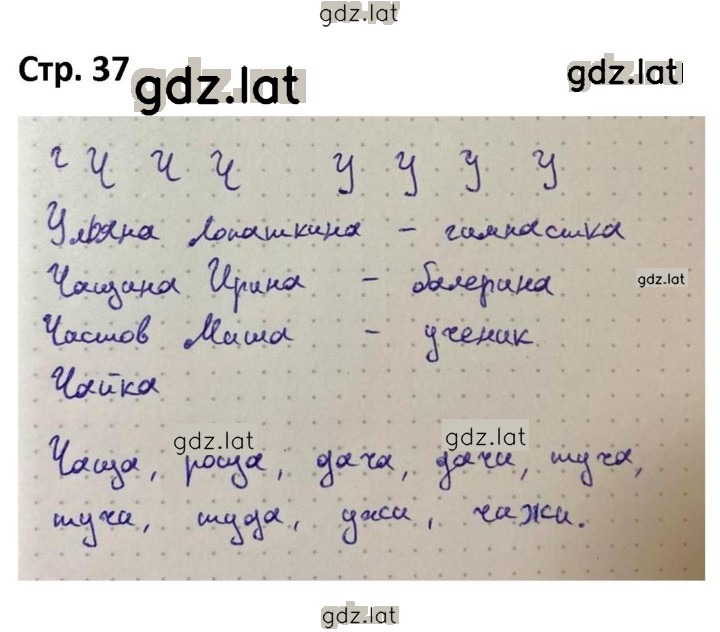 gdz.lat
Стр. 37 gdz.lat gdz.lat
г Ч Ч Ч У У У У
Ульяна Лопашкина - гимнастка
Чащина Ирина - балерина gdz.lat
Частов Миша - ученик
Чайка
gdz.lat gdz.lat
Чаща, роща, дача, дачи, туча,
тучи, туда, ужи, чажи.
gdz.lat